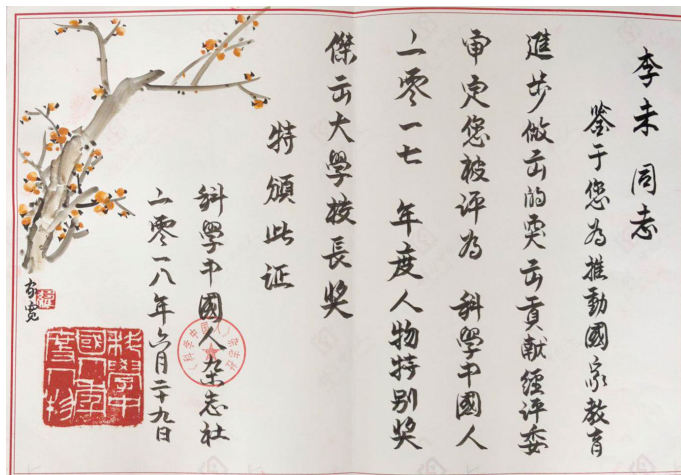 李未同志
鉴于您为推動國家教育
進步做出的突出貢獻經评委
审定您被评为 科學中國人
二零一七 年度人物特别奖
傑出大學校長奖
特頒此证
科學中國人杂志社
二零一八年六月二十九日
家寬
《科学中国人》杂志社
科學中
國人年
度人物